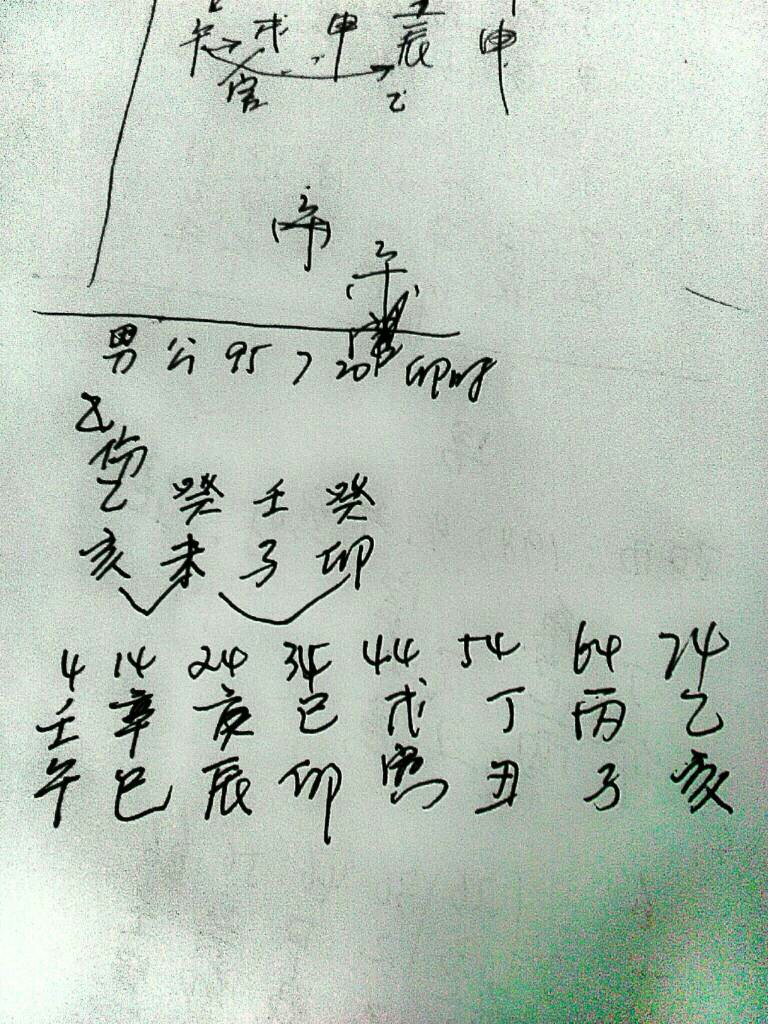 午 戌 申 辰 申
官 乙
男 公 95 7 20 卯时
伤
乙 癸 壬 癸
亥 未 子 卯
4 14 24 34 44 54 64 74
壬 辛 庚 己 戊 丁 丙 乙
午 巳 辰 卯 寅 丑 子 亥